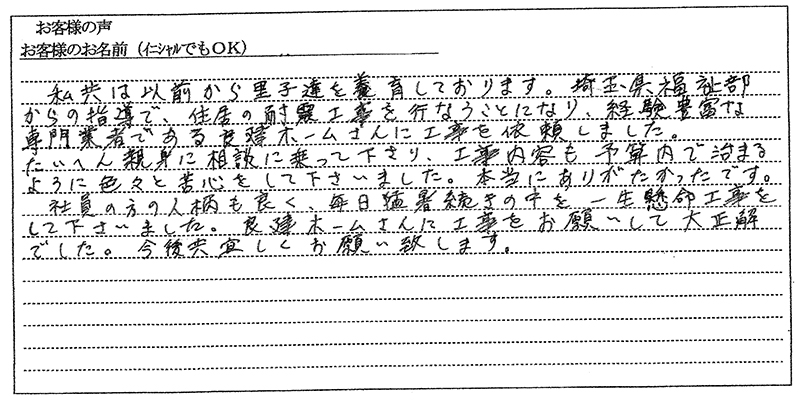 お客様の声
お客様のお名前（イニシャルでもOK）
私共は以前から里子達を養育しております。埼玉県福祉部
からの指導で、住居の耐震工事を行なうことになり、経験豊富な
専門業者である良建ホームさんに工事を依頼しました。
たいへん親身に相談に乗って下さり、工事内容も予算内で治まる
ように色々と苦心をして下さいました。本当にありがたかったです。
社員の方の人柄も良く、毎日猛暑続きの中を一生懸命工事を
して下さいました。良建ホームさんに工事をお願いして大正解
でした。今後共宜しくお願い致します。